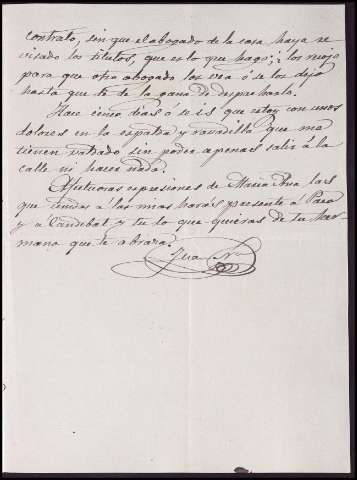 contrato, sin que el abogado de la casa haya re
visado los títulos, que es lo que hago; ¿los recojo
para que otro abogado los vea ó se los dejo
hasta que le dé la gana de despacharlo.
Hace cinco dias ó seis que estoy con unos
dolores en la espalda y rabadilla que me
tienen baldado sin poder apenas salir á la
calle ni hacer nada.
Afectuosas espresiones de Maria Ana, las
que unidas á las mias harás presente á Paco
y á Candebat y tu lo que quieras de tu her-
mano que te abraza.
Juan